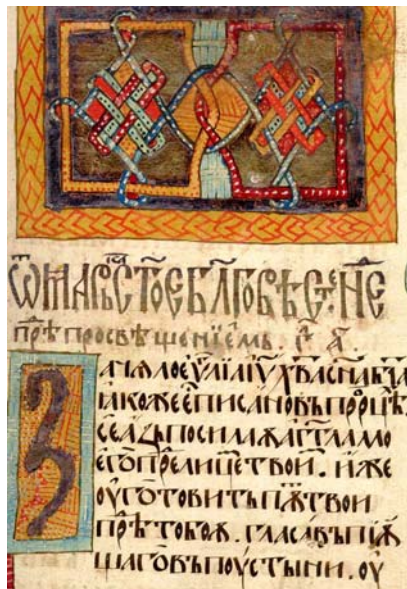 Ѿ марⷦ҇ ст҃ое бл҃говѣсⷮе҇нїе
прѣⷤ просвѣщенїемь . гл҃ а҃ .
Зачѧло еѵⷢ҇лїа іѵ҃ х҃ва сн҃а бж҃їа
ꙗкоже е҇ писано въ прⷪ҇рцѣ
се азь посилаѫ агг҃ла мо
его прѣⷣ лицеⷨ твоиⷨ . иже
оуготовить пѫⷮ твои
прѣⷣ тобоѫ . глась въпїѫ
щаго въ поустыни . оу